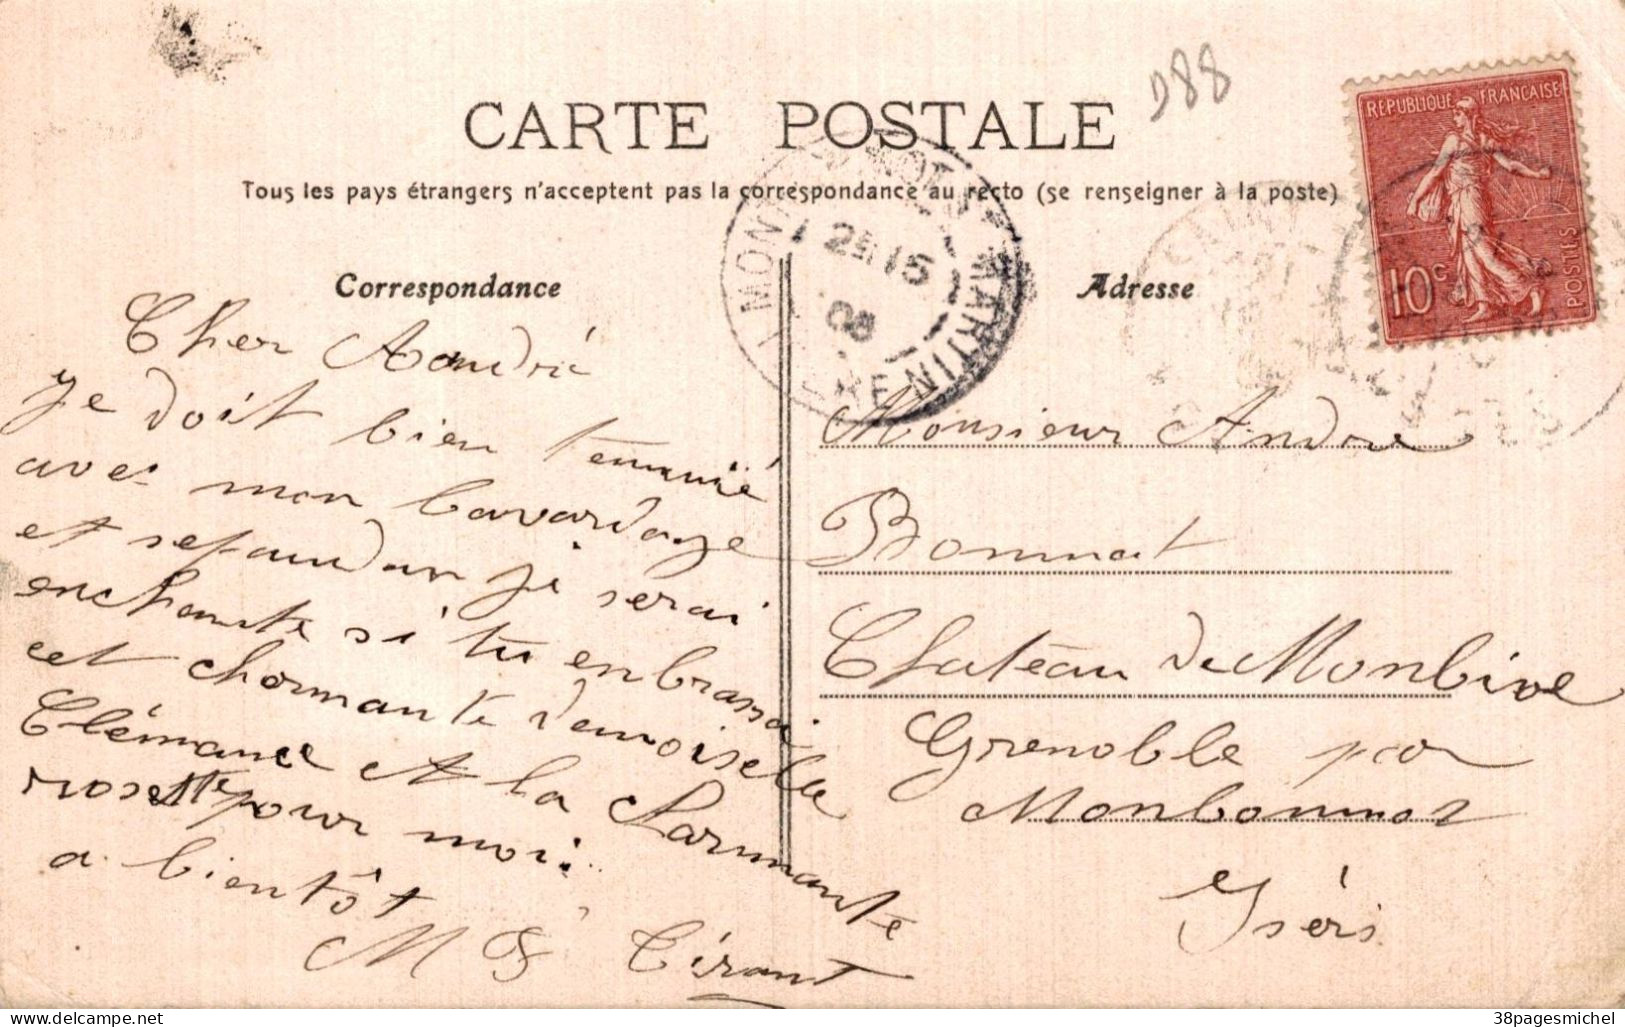 D88
CARTE POSTALE
Tous les pays étrangers n'acceptent pas la correspondance au recto (se renseigner à la poste)
REPUBLIQUE FRANÇAISE
10c
POSTES
MONT MARTIN
25 15
08
Correspondance
Cher André
Je doit bien
avec mon bavardage
et sepandan je serai
enchante si tu enbrassai
cet charmante demoiselle
Clémance et la charmante
rosette pour moi.
a bientôt
M F Tirant
Adresse
Monsieur Andre
Bonnat
Chateau de Monbive
Grenoble par
Monbonnot
Iséris
38pagesmichel
delcampe.net